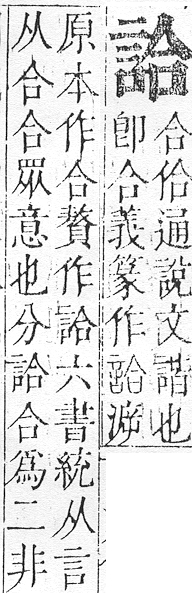 詥
合佮通說文諧也
卽合義篆作詥泝
原本作合贅作詥六書統从言
从合合眾意也分詥合爲二非